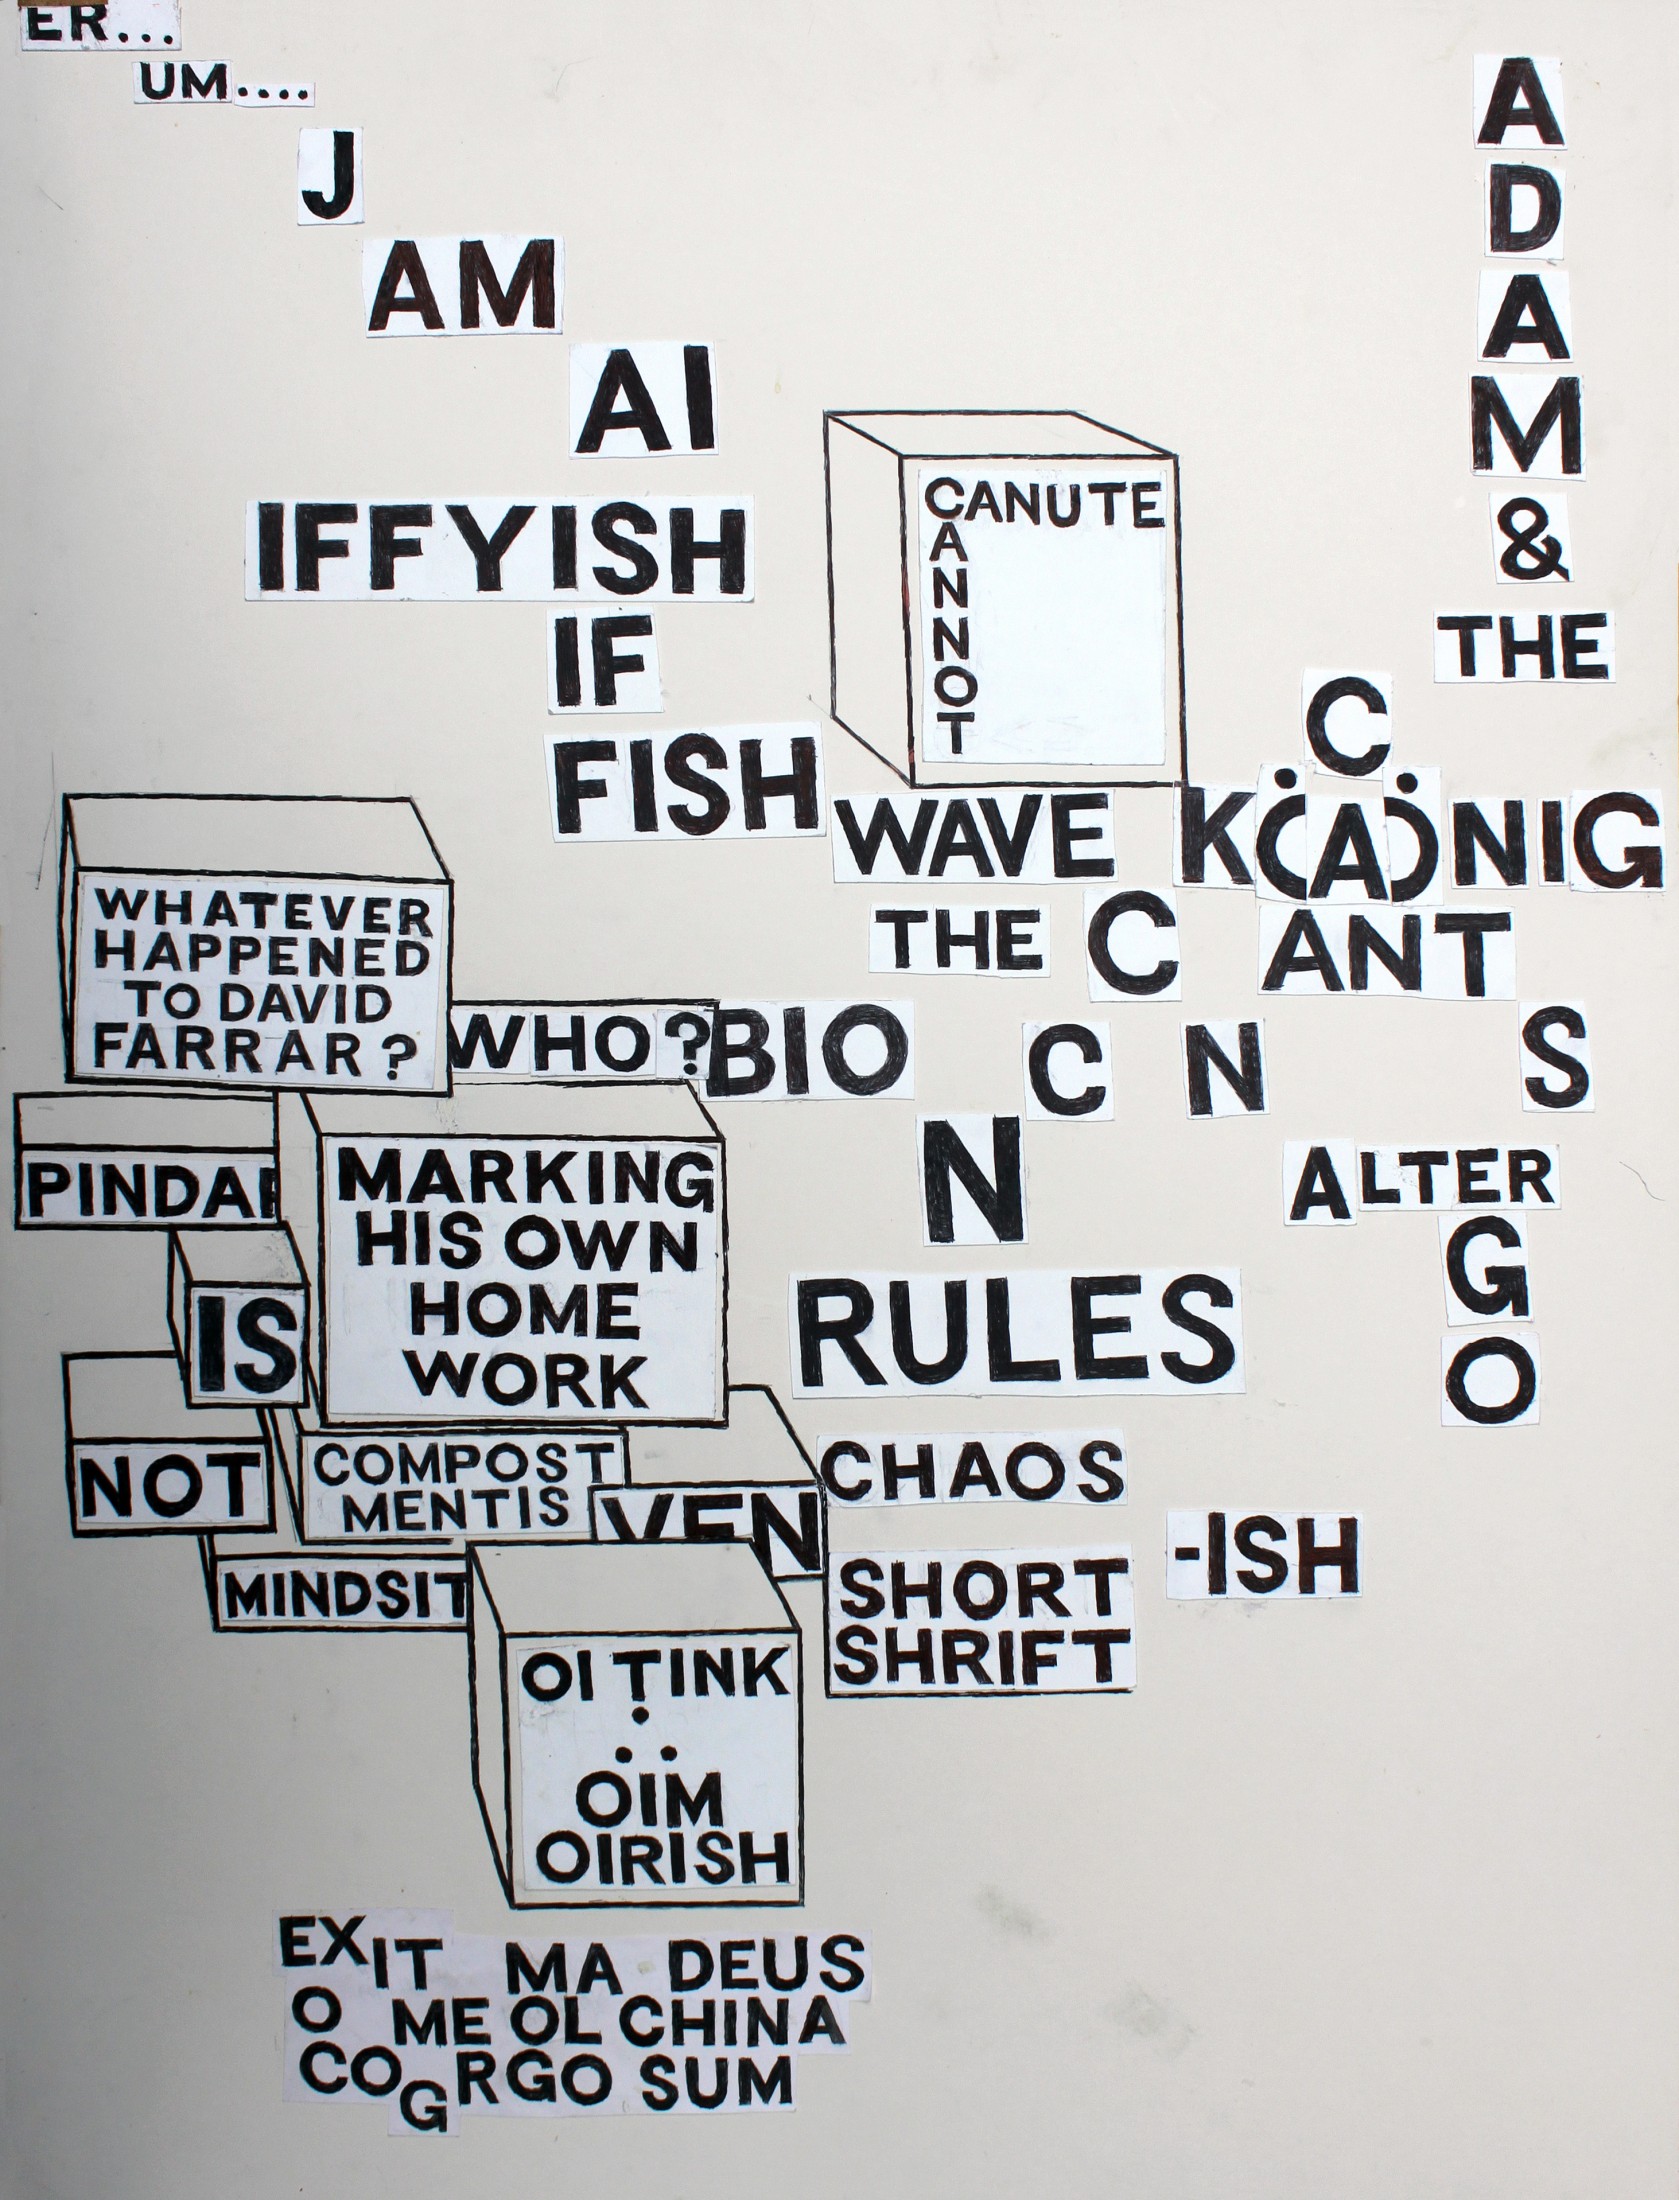 ER...
UM....
J
AM
AI
IFFYISH
IF
FISH
CANUTE
CANNOT
ADAM
&
THE
C
WAVE KÖAÖNIG
THE C ANT
S
WHATEVER
HAPPENED
TO DAVID
FARRAR?
WHO?
BIO
C N
N
PINDAR
MARKING
HIS OWN
HOME
WORK
ALTER
GO
IS
RULES
NOT
COMPOST
MENTIS
VEN
CHAOS
-ISH
MINDSIT
SHORT
SHRIFT
OI TINK
OIM
OIRISH
EXIT MA DEUS
O ME OL CHINA
COGRGO SUM